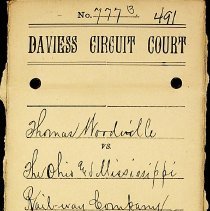 No. 777 B 491
DAVIESS CIRCUIT COURT
Thomas Woodville
VS.
The Ohio & Mississippi
Railway Company